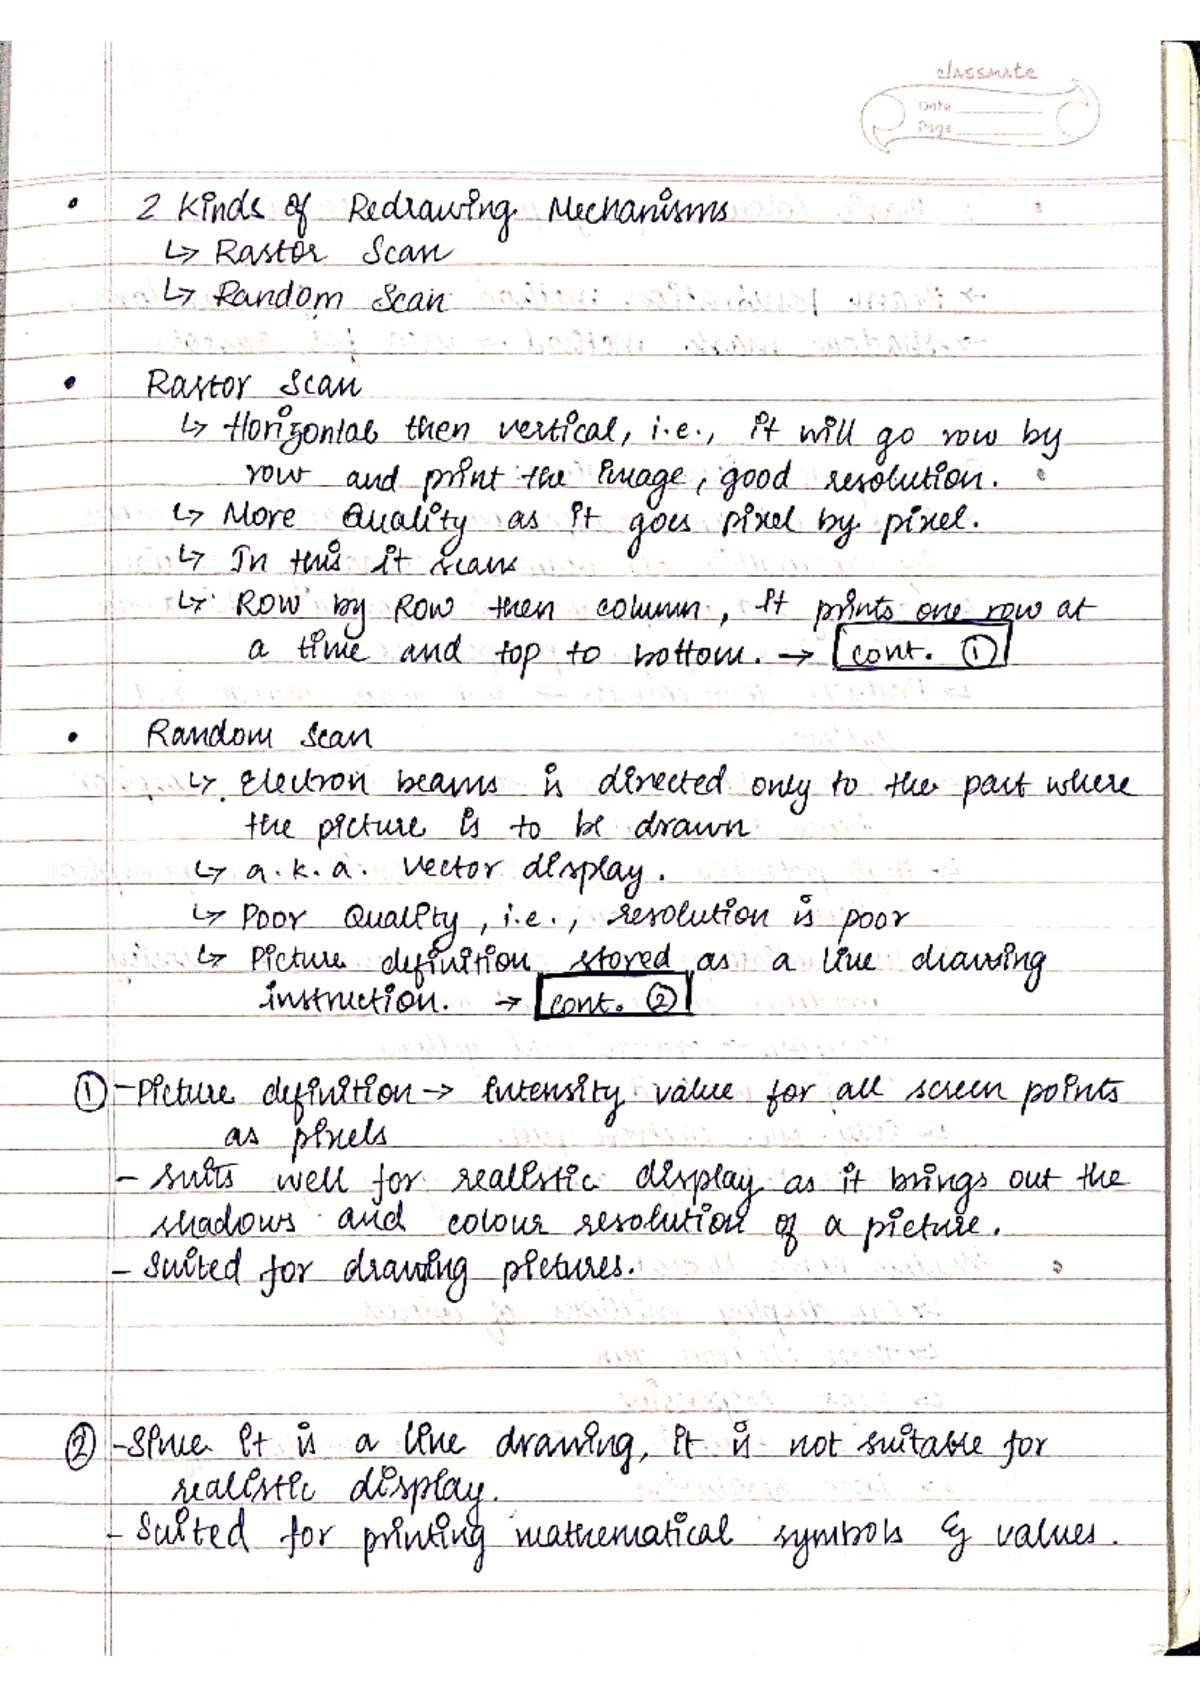 classmate
Date
Page
• 2 Kinds of Redrawing Mechanisms
↳ Rastor Scan
↳ Random Scan
• Rastor Scan
↳ Horizontal then vertical, i.e., it will go row by
row and print the image, good resolution.
↳ More Quality as it goes pixel by pixel.
↳ In this it scans
↳ Row by Row then column, it prints one row at
a time and top to bottom. → cont. ①
• Random Scan
↳ Electron beams is directed only to the part where
the picture is to be drawn
↳ a.k.a. vector display.
↳ Poor Quality, i.e., resolution is poor
↳ Picture definition stored as a line drawing
instruction. → cont. ②
① - Picture definition → intensity value for all screen points
as pixels
- suits well for realistic display as it brings out the
shadows and colour resolution of a picture.
- Suited for drawing pictures.
② - Since it is a line drawing, it is not suitable for
realistic display.
- Suited for printing mathematical symbols & values.